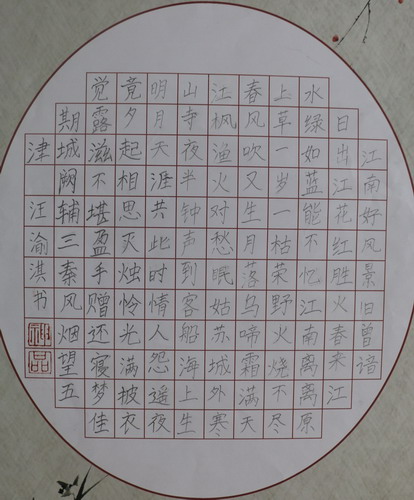 江南好风景旧曾谙
日出江花红胜火春来江
水绿如蓝能不忆江南离离原
上草一岁一枯荣野火烧不尽
春风吹又生月落乌啼霜满天
江枫渔火对愁眠姑苏城外寒
山寺夜半钟声到客船海上生
明月天涯共此时情人怨遥夜
竟夕起相思灭烛怜光满披衣
觉露滋不堪盈手赠还寝梦佳
期城阙辅三秦风烟望五
津 汪渝淇书
神品